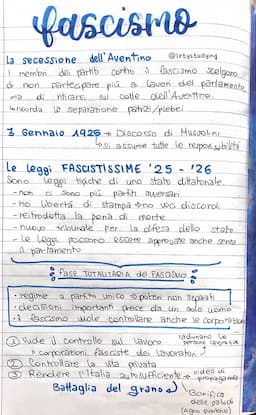 fascismo
La secessione dell'Aventino @letystudying
I membri dei partiti contro il fascismo scelgono
di non partecipare più ai lavori del parlamento
ma di ritirarsi sul colle dell'Aventino.
↳ricorda la separazione patrizi/plebei
3 Gennaio 1925 → Discorso di Mussolini
↳si assume tutte le responsabilità
Le leggi FASCISTISSIME '25 - '26
Sono leggi tipiche di uno stato dittatoriale.
- non ci sono più partiti avversari
- no libertà di stampa → no voci discordi
- reitrodotta la pena di morte
- nuovo tribunale per la difesa dello stato
- le leggi possono essere approvate anche senza
il parlamento
FASE TOTALITARIA del FASCISMO
• regime a partito unico → poteri non separati
• decisioni importanti prese da un solo uomo
• il fascismo vuole controllare anche le corporazioni
① Vuole il controllo sul lavoro
↳ corporazioni fasciste dei lavoratori → radunano le persone lavorative
② Controllare la vita privata
③ Rendere l'Italia autosufficiente → video di propaganda
Battaglia del grano
Bonifica
delle paludi
(Agro pontino)